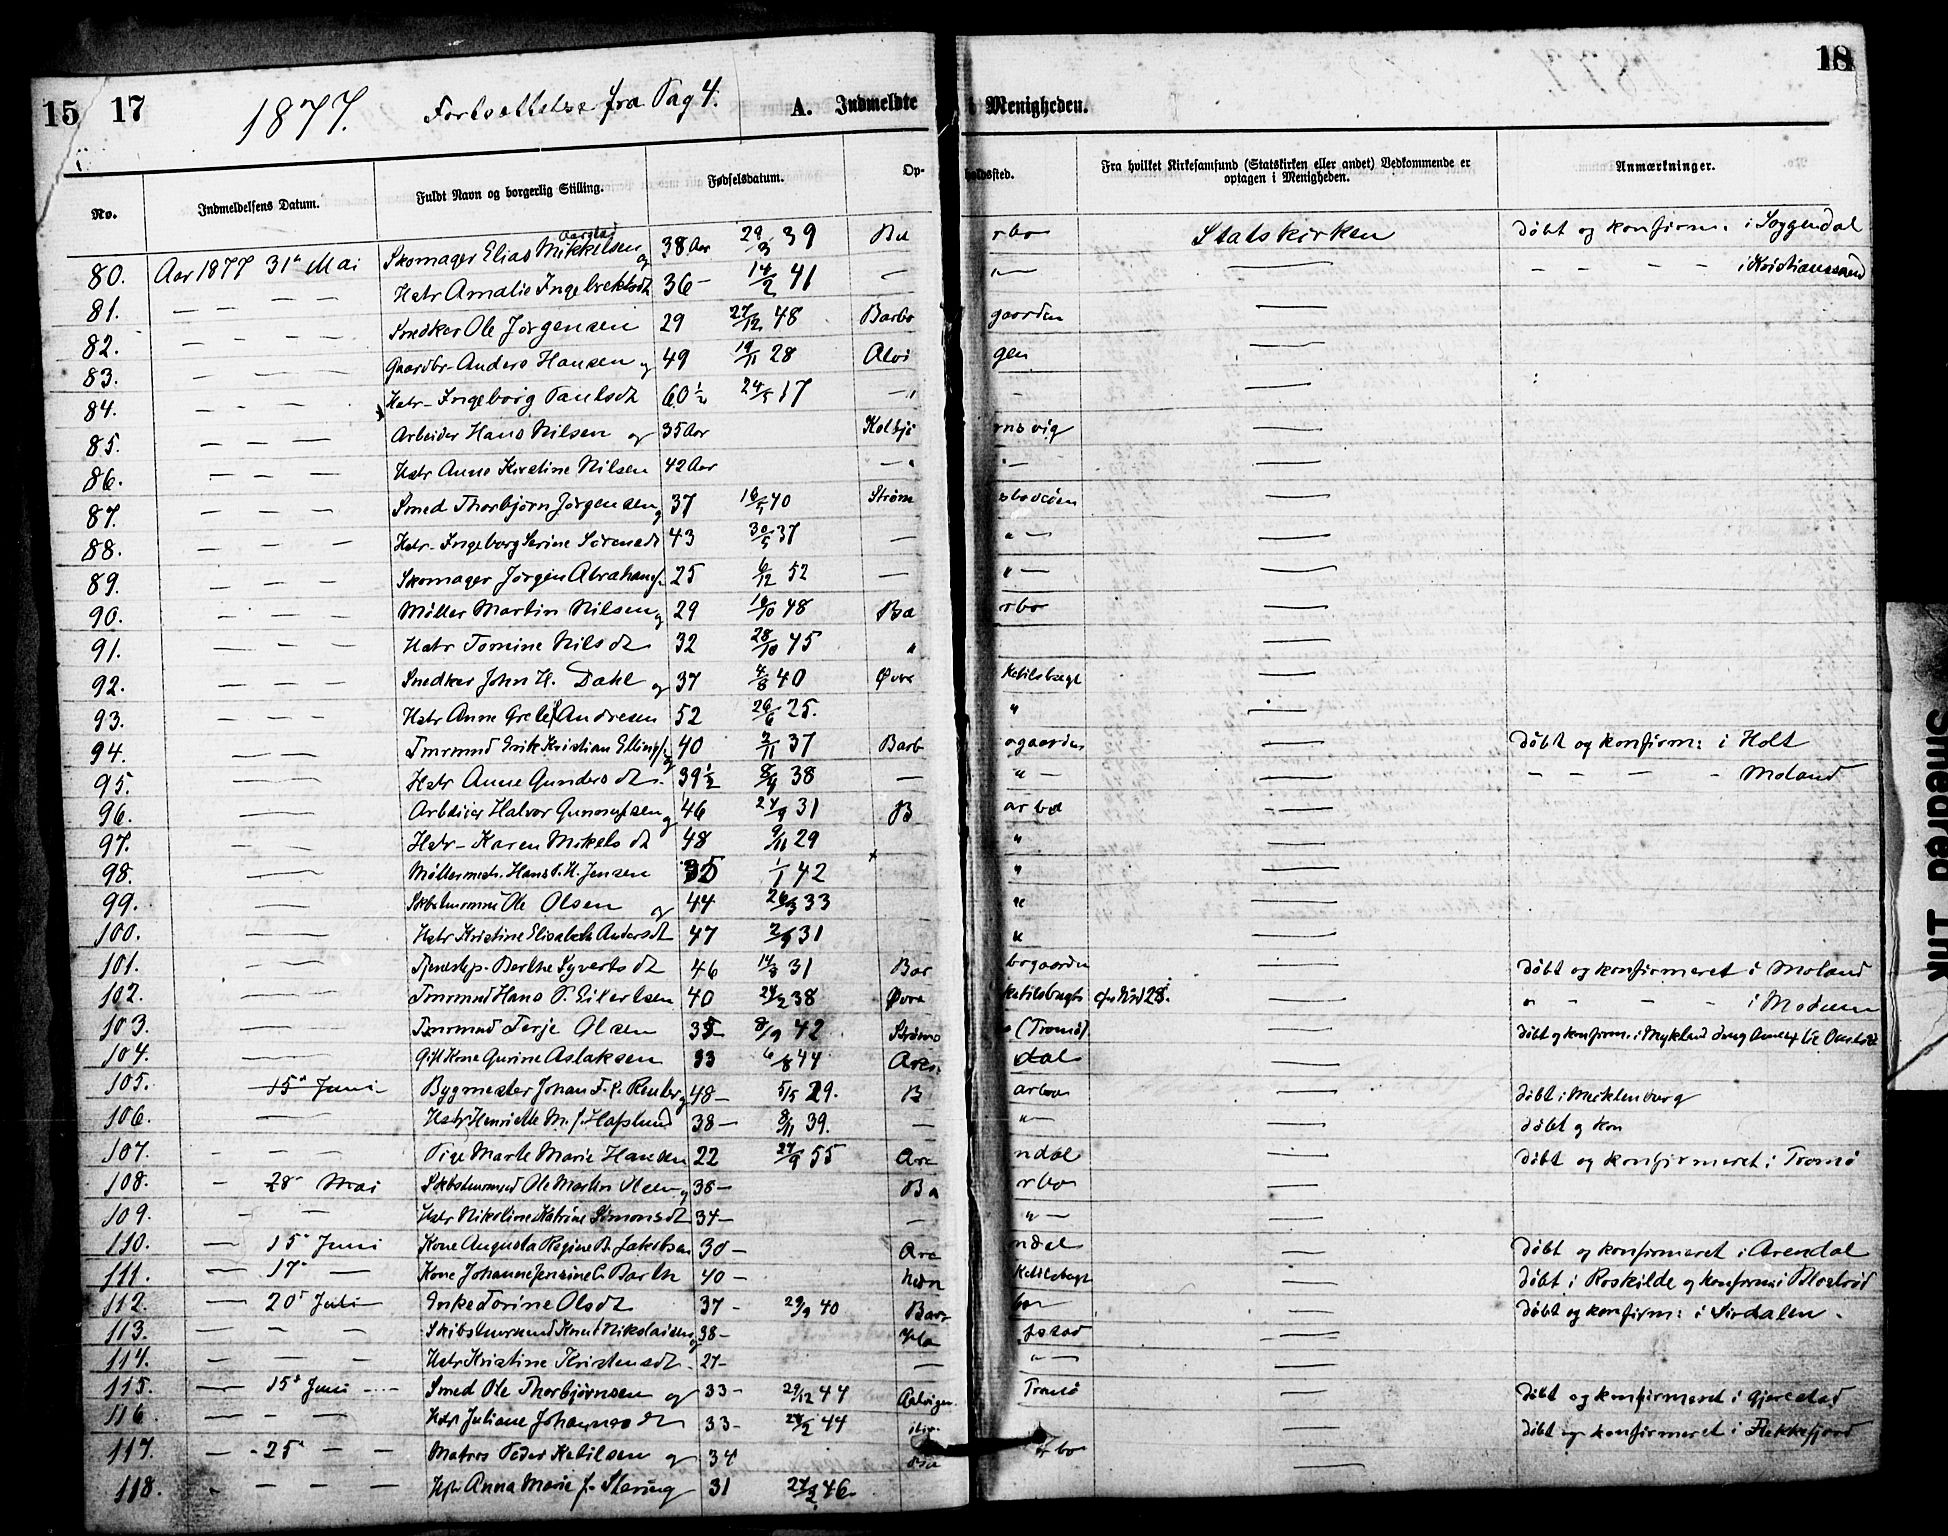 15 17 1877. Fortsættelse fra Pag 4. A. Indmeldte i Menigheden. 18
No. Indmeldelsens Datum. Fuldt Navn og borgerlig Stilling. Fødselsdatum. Opholdssted. Fra hvilket Kirkesamfund (Statskirken eller andet) Vedkommende er optagen i Menigheden. Anmærkninger.
80. Aar 1877 31te Mai Skomager Elias Mikkelsen Aarstad og 38 Aar 29/3 39 Barbo Statskirken døbt og konfirm: i Soggendal
81. — — — Hstr Amalie Ingebrektsdt 36 — 14/2 41 — " — — — — — — i Kristianssand
82. — — — Snedker Ole Jørgensen 29 27/12 48 Barbogaarden —
83. — — — Gaardbr. Anders Hansen og 49 19/11 28 Alvigen —
84. — — — Hstr Ingeborg Paulsdt 60 1/2 24/5 17 — " —
85. — — — Arbeider Hans Nilsen og 35 Aar Kolbjørnsvig —
86. — — — Hstr Anne Kirstine Nilsen 42 Aar — " — —
87. — — — Smed Thorbjørn Jørgensen og 37 16/5 40 Strømsbodøen —
88. — — — Hstr Ingeborg Serine Sørensdt 43 30/5 37 — " — —
89. — — — Skomager Jørgen Abrahams. 25 6/12 52 — " — —
90. — — — Møller Martin Nilsen og 29 16/10 48 Barbo —
91. — — — Hstr Tomine Nilsdt 32 28/10 45 " —
92. — — — Snedker John H. Dahl og 37 4/8 40 Øvre Ketilsbugt —
93. — — — Hstr Anne Grete Andresen 52 26/6 25. " —
94. — — — Tmrmnd Erik Kristian Ellings. og 40 2/11 37 Barbogaarden — døbt og konfirm: i Holt
95. — Hstr Anne Gundersdt. 39 1/2 8/9 38 — " — — — — — — Moland
96. — Arbeider Halvor Gunnufsen og 46 24/9 31 Barbo —
97. — Hstr Karen Mikelsdt 48 9/11 29 " —
98. — Møllermstr. Hans P. H. Jensen 35 1/1 42 " —
99. — Skbstmrmnd Ole Olsen og 44 26/3 33 " —
100. — Hstr Kristine Elisabeth Andersdt 47 2/9 31 " —
101. — Tjenestep. Berthe Syvertsdt 46 14/3 31 Barbogaarden — døbt og konfirmeret i Moland
102. — Tmrmnd Hans P. Eilertsen 40 24/2 38 Øvre Ketilsbugt — " — — — i Modum
103. — Tmrmnd Terje Olsen 35 8/9 42 (Tromø) — døbt og konfirm. i Mykland
104. — Gift Kone Gurine Aslaksen 33 6/8 44 Arendal —
105. 15de Juni Bygmester Johan F. C. og 48 — 5/5 29. Barbo — døbt i Meklenburg
106. — Hstr Henriette M. f. Hafslund 38 — 8/11 39. — " — — døbt og kon
107. — — — Pige Marte Marie Hansen 22 24/9 55 Arendal — døbt og konfirmeret i Tromø
108. — 28de Mai Skbstmrmnd Ole Martin Steen og 38 — Barbo —
109. — — Hstr Nikoline Katrine Simonsdt 34 — — " — —
110. — 15de Juni Kone Augusta Regine B. Jakobsen 30 — Arendal — døbt og konfirmeret i Arendal
111. — 17de — Kone Johanne Jensine C. Barth 40 — Ketilsbugt — døbt i Roskilde og konfirm i
112. — 20de Juli — Enke Torine Olsdt 37 — 29/9 40 Barbo — døbt og konfirm: i Sirdalen.
113. — — — Skibstmrmnd Knud Nikolaisen og 38 — —
114. — — — Hstr Kristine Kristensdt. 27 — — " — —
115. — 15de Juni — Smed Ole Thorbjørnsen og 33 — 29/12 44 Aalvigen Tromø — døbt og konfirmeret i Gjerestad
116. — — — Hstr Juliane Johannesdt 33 — 24/2 44 — døbt og konfirmeret i Flekkefjord
117. — 25de — — Matros Peder Ketilsen og 34 —
118. — — — — Hstr Anna Marie f. Støring 31 27/2 46. —
Smeared Ink